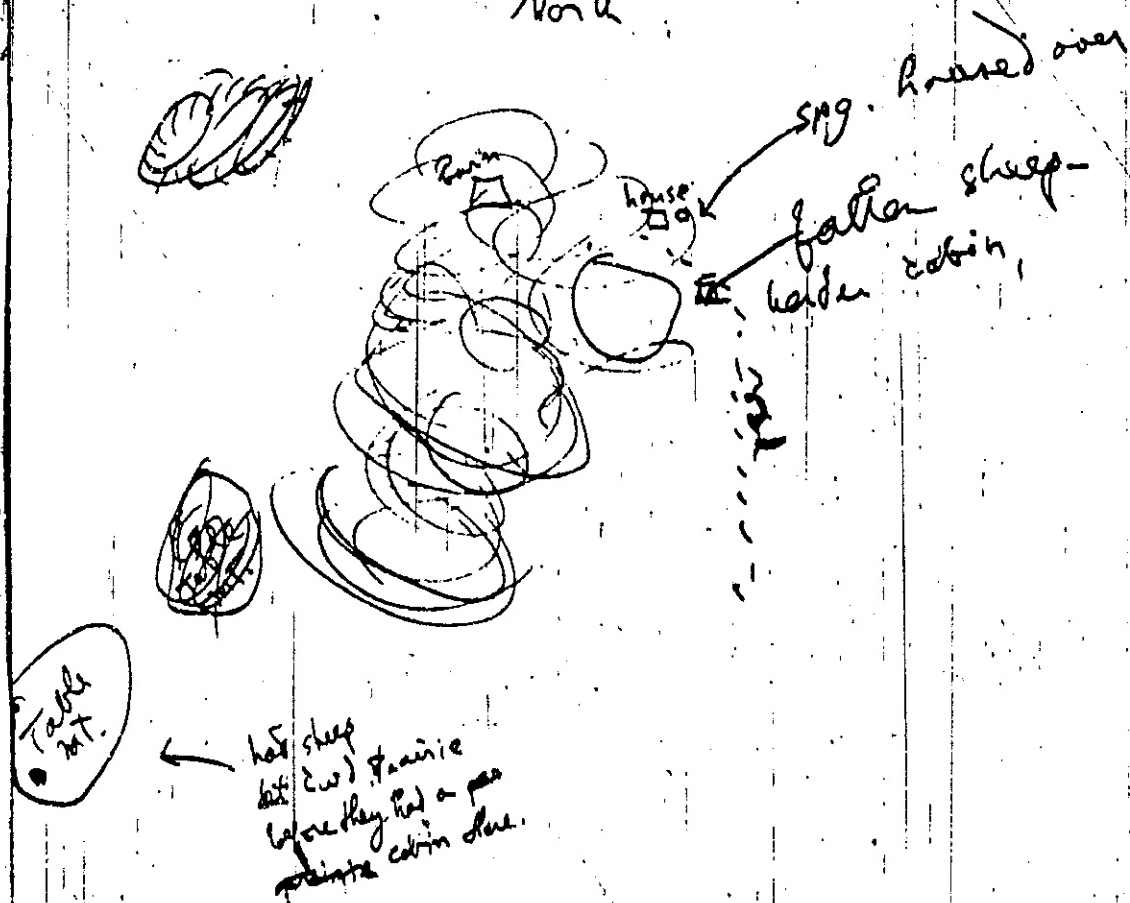 North
spg. housed over
Barn
house
fallen sheep-
herder cabin,
Table
Mt.
had sheep
prairie
before they had a
cabin there.